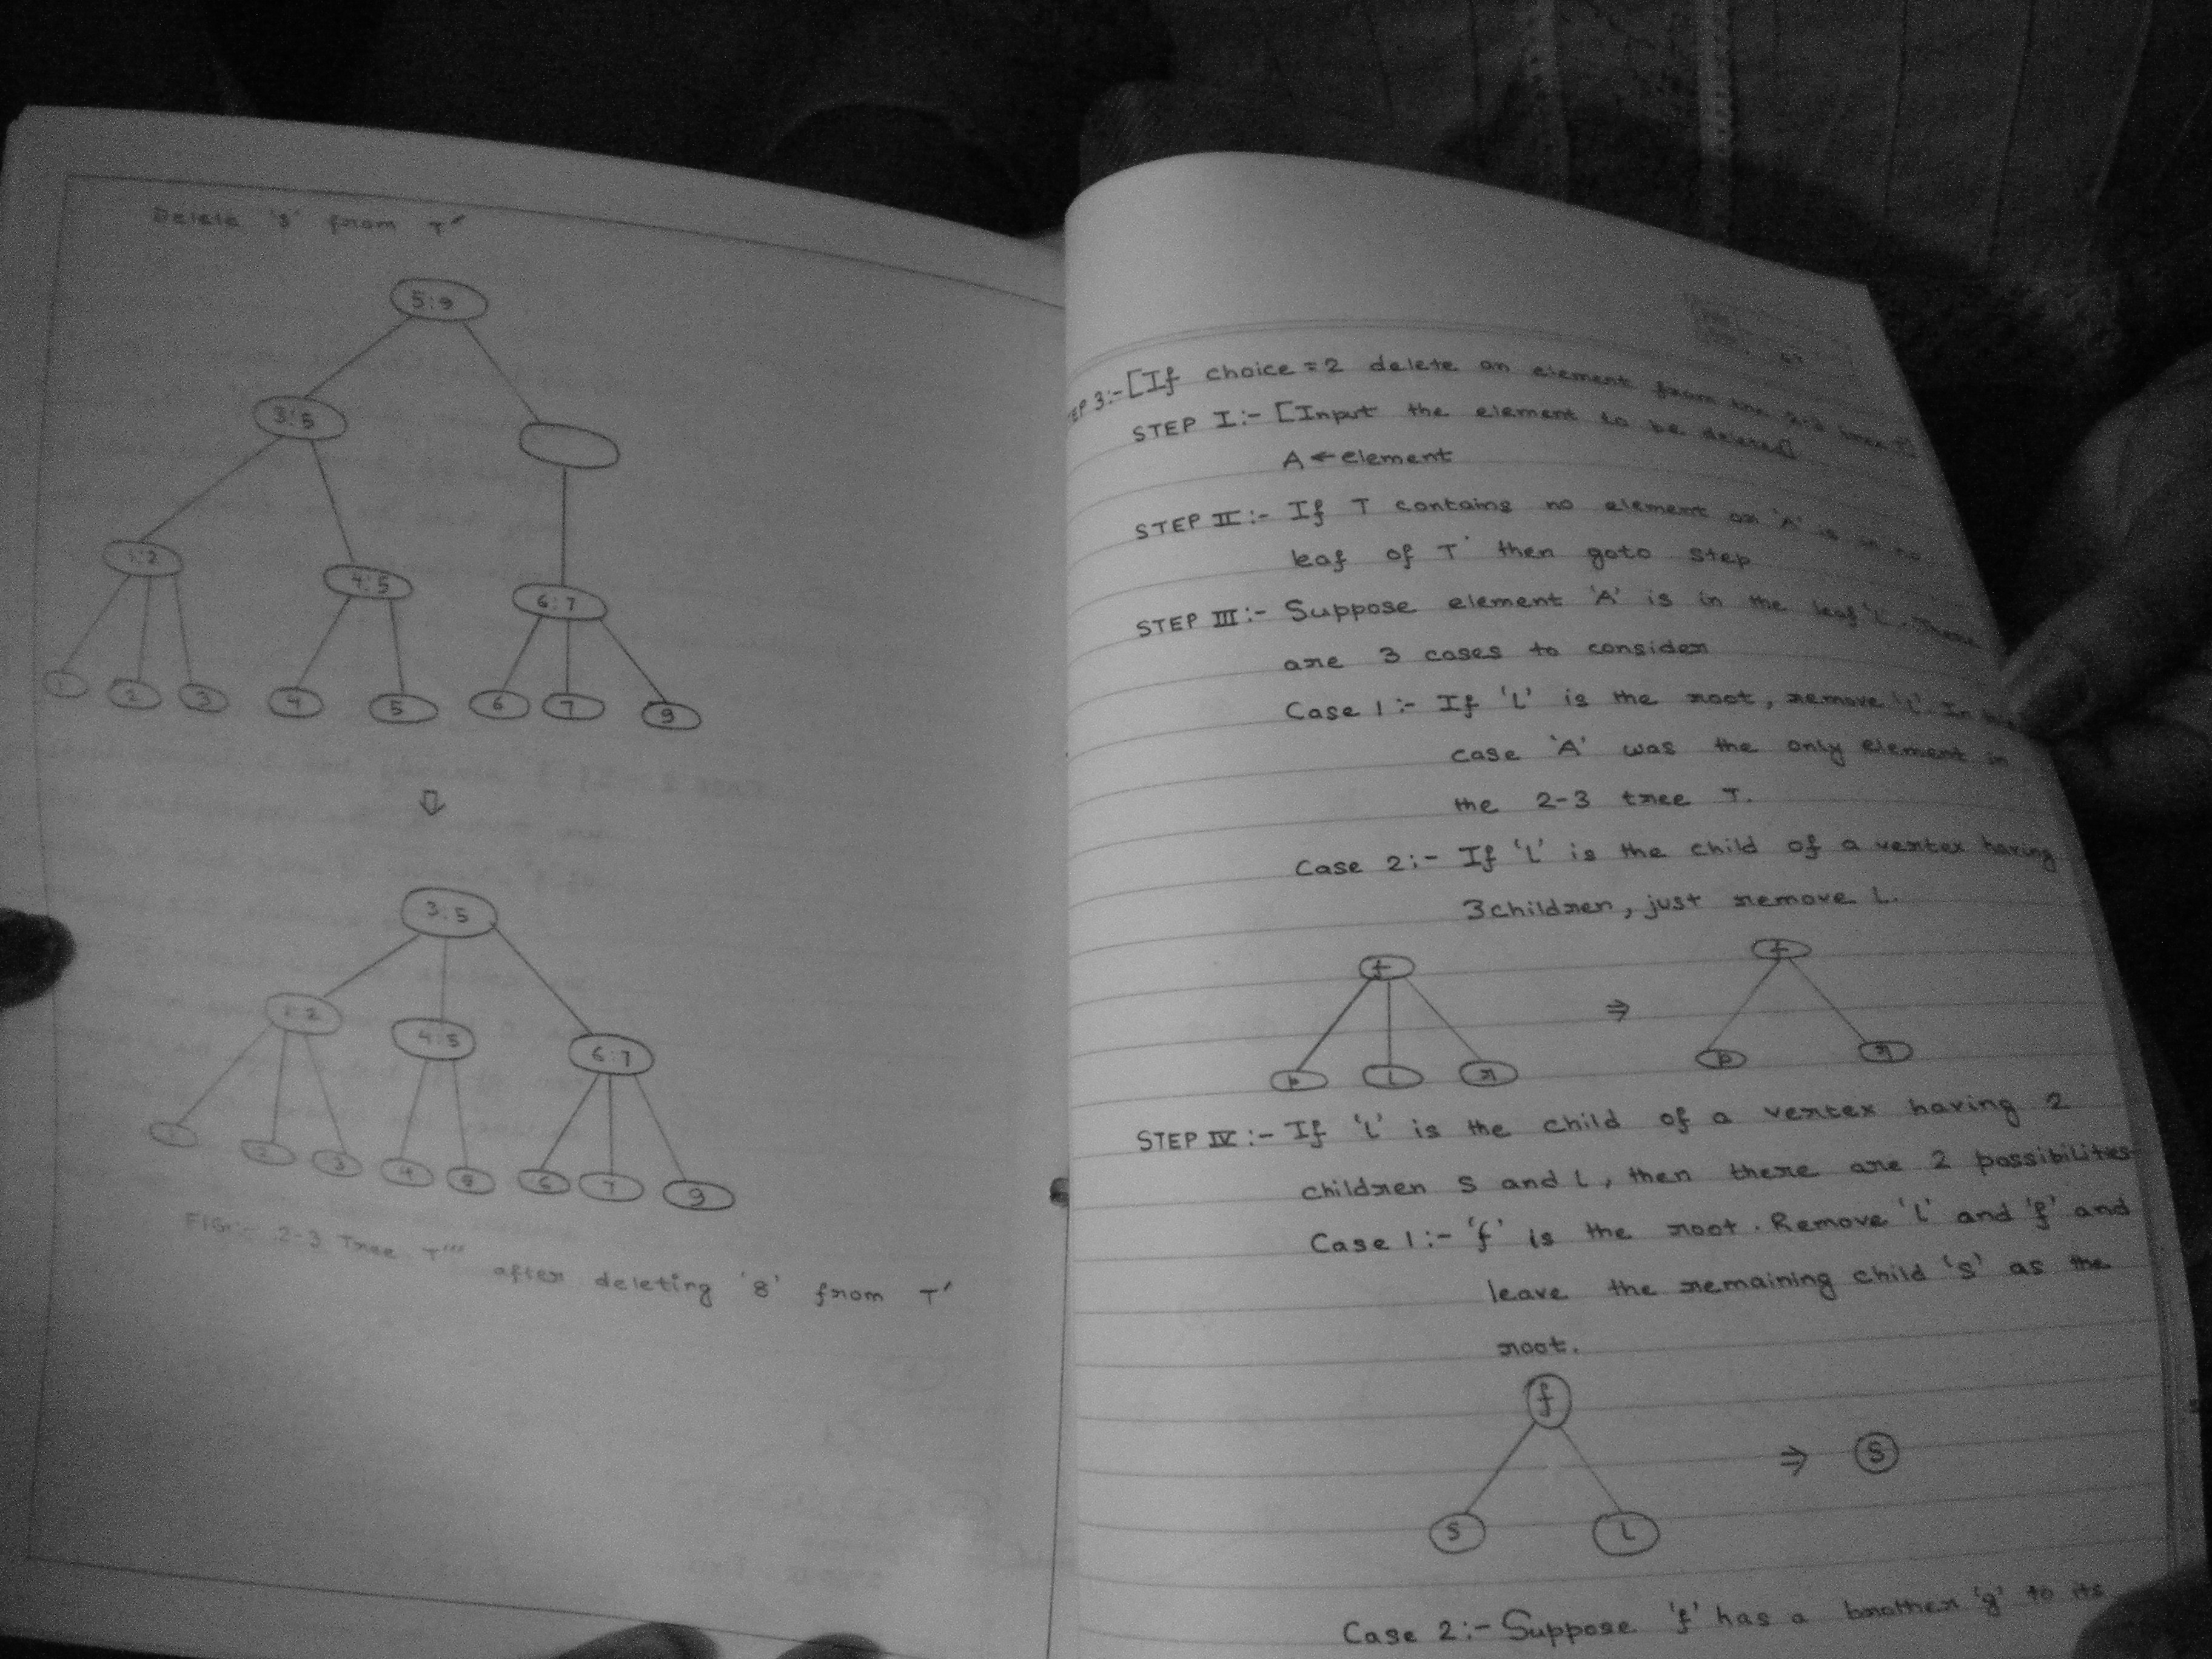 Delete '8' from T'
5:9
3:5
1:2
4:5
6:7
1 2 3 4 5 6 7 9
⇩
3:5
1:2
4:5
6:7
2 3 4 5 6 7 9
2-3 Tree T''' after deleting '8' from T'
STEP 3:- [If choice = 2 delete an element from the 2-3 tree T]
STEP I:- [Input the element to be deleted]
A ← element
STEP II:- If T contains no element or 'A' is in no
leaf of T then goto step
STEP III:- Suppose element 'A' is in the leaf 'L'. There
are 3 cases to consider
Case 1:- If 'L' is the root, remove 'L'. In
case 'A' was the only element in
the 2-3 tree T.
Case 2:- If 'L' is the child of a vertex having
3children, just remove L.
f ⇒ f
p l r p r
STEP IV:- If 'L' is the child of a vertex having 2
children S and L, then there are 2 possibilities
Case 1:- 'f' is the root. Remove 'L' and 'f' and
leave the remaining child 's' as the
root.
f
⇒ S
S L
Case 2:- Suppose 'f' has a brother 'g' to its